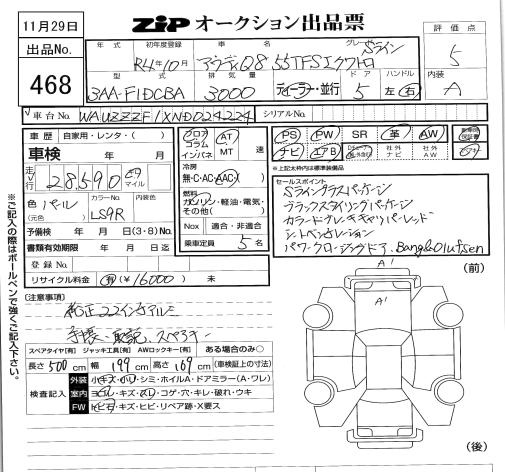 11月29日
ZIP オークション出品票
評価点
5
出品No.
468
年式 初年度登録 車名 グレード
R4年10月 アウディQ8 55TFSIクワトロ Sライン
型式 排気量 ドア ハンドル
3AA-F1DCBA 3000 ディーラー・並行 5 左 右
内装
A
車台No. WAUZZZF1XND024224 シリアルNo.
車歴 自家用・レンタ・( )
車検 年 月
走行 28590 キロ マイル
色 パール
(元色)
カラーNo. LS9R
内装色
予備検 年 月 日(3・8)No.
書類有効期限 年 月 日迄
登録No.
リサイクル料金 有(¥16000) 未
フロア コラム インパネ
AT MT 速
冷房
無・C・AC・AAC( )
燃料
ガソリン・軽油・電気・その他( )
Nox 適合・非適合
乗車定員 5 名
PS PW SR 革 AW 新車時保証書
ナビ エアB 社外ナビ 社外AW
※上記太枠内は標準装備品
セールスポイント
Sライングラスパッケージ
ブラックスタイリングパッケージ
カラードブレーキキャリパーレッド
シートベンチレーション
パワークロージングドア、Bang&Olufsen
(注意事項)
純正22インチアルミ
手帳、取説、スペアキー
スペアタイヤ[有] ジャッキ工具[有] AWロックキー[有] ある場合のみ○
長さ 500 cm 幅 199 cm 高さ 169 cm (車検証上の寸法)
検査記入
外装 小キズ・小凹・シミ・ホイルA・ドアミラー(A・ワレ)
室内 ヨゴレ・キズ・スリ・コゲ・穴・キレ・破れ・ウキ
FW トビ石・キズ・ヒビ・リペア跡・X要ス
※ご記入の際はボールペンで強くご記入下さい。
(前)
A'
A'
(後)